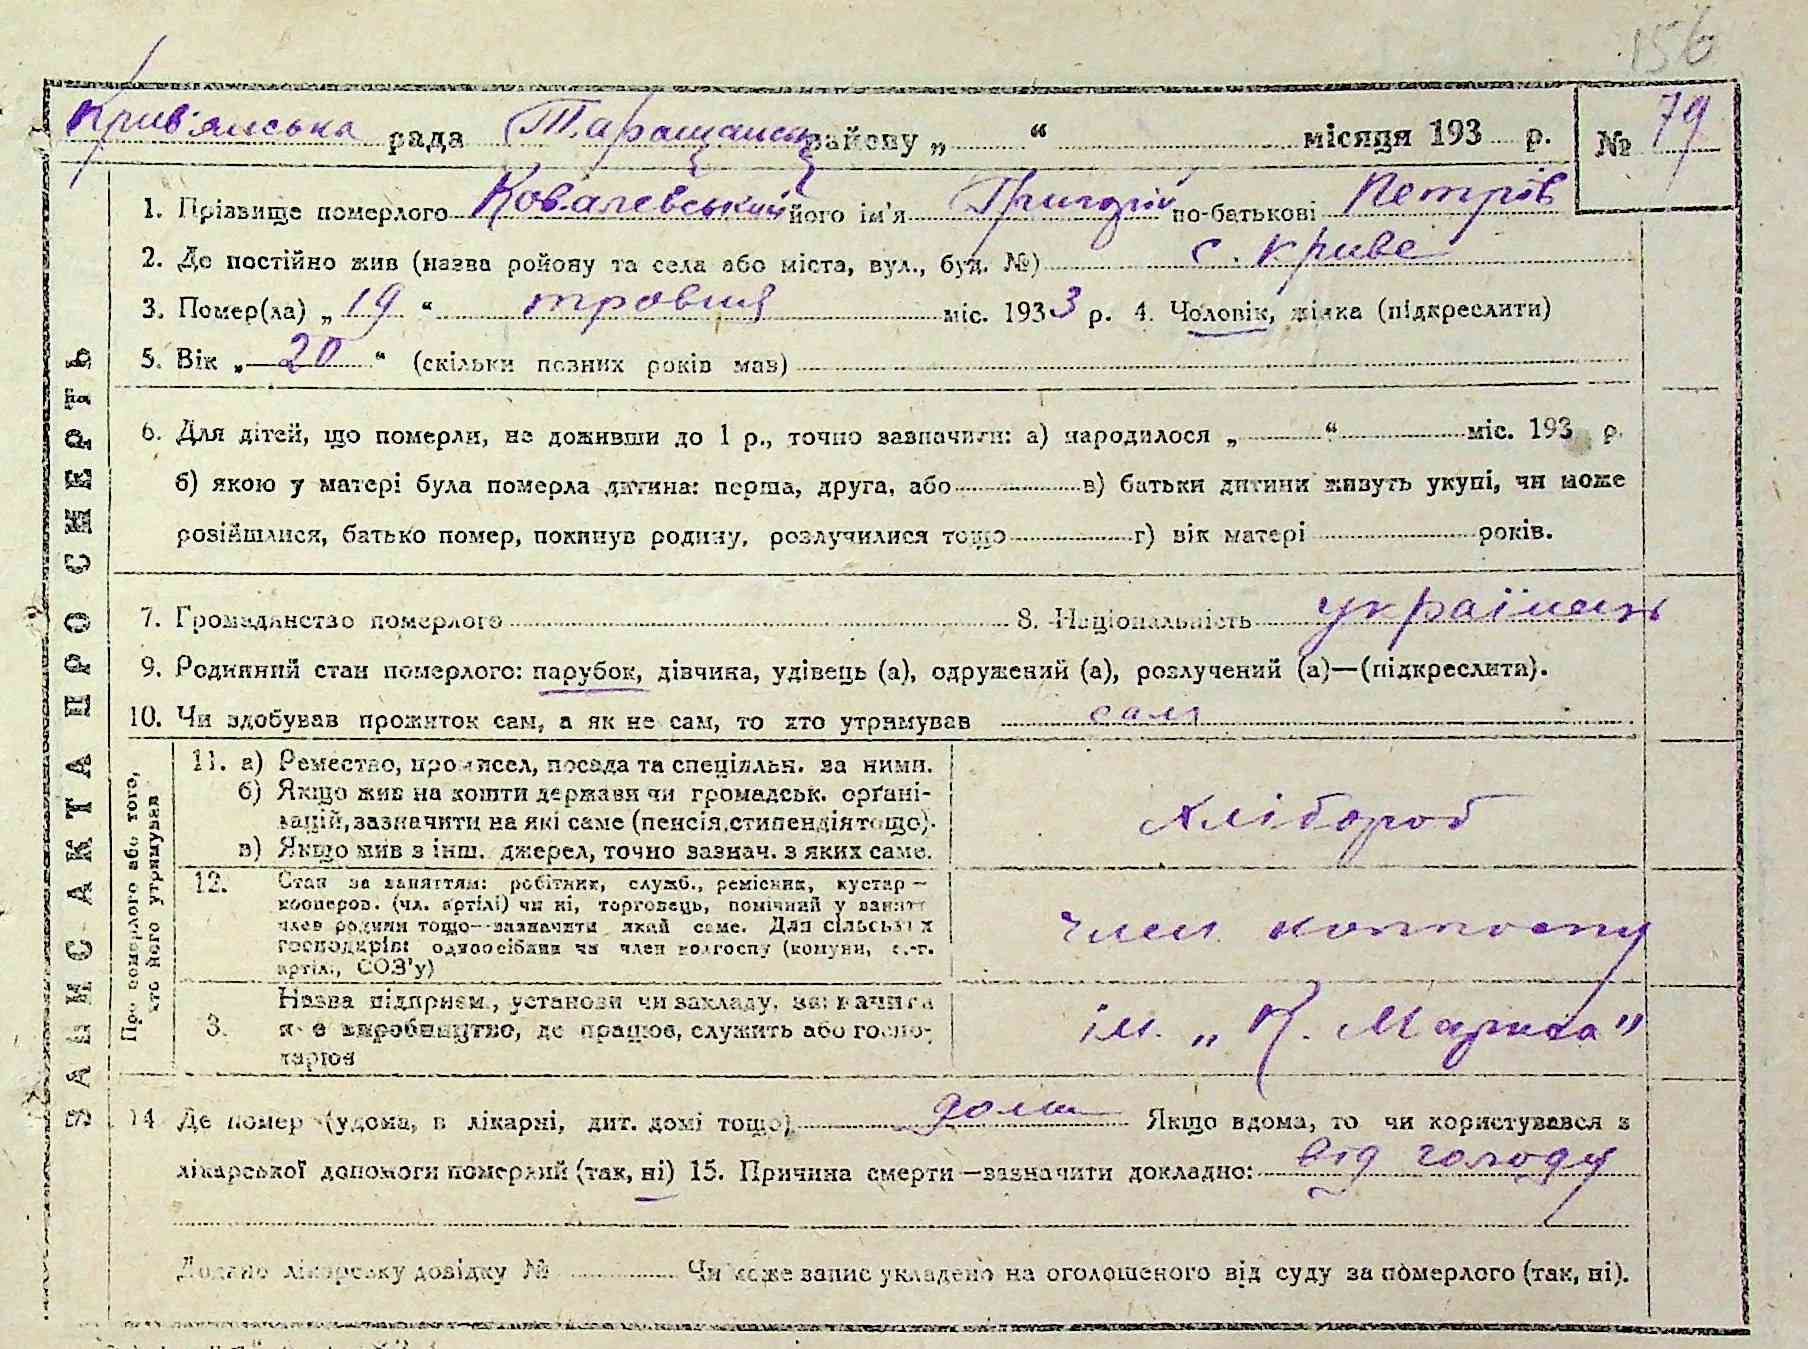 156
Крив'янська рада Таращанськ району „ “ місяця 193 р. № 79
1. Прізвище померлого Ковалевський його ім'я Григорій по-батькові Петрів
2. Де постійно жив (назва ройону та села або міста, вул., буд. №) с. Криве
3. Помер(ла) „ 19 “ травня міс. 1933 р. 4. Чоловік, жінка (підкреслити)
5. Вік „ 20 “ (скільки повних років мав)
6. Для дітей, що померли, не доживши до 1 р., точно зазначити: а) народилося „ “ міс. 193 р.
б) якою у матері була померла дитина: перша, друга, або в) батьки дитини живуть укупі, чи може
розійшлися, батько помер, покинув родину, розлучилися тощо г) вік матері років.
7. Громадянство померлого 8. Національність українець
9. Родинний стан померлого: парубок, дівчина, удівець (а), одружений (а), розлучений (а)—(підкреслити).
10. Чи здобував прожиток сам, а як не сам, то хто утримував сам
11. а) Ремество, промисел, посада та спеціяльн. за ними.
б) Якщо жив на кошти держави чи громадськ. органі-
зацій, зазначити на які саме (пенсія, стипендія тощо).
в) Якщо жив з інш. джерел, точно зазнач. з яких саме.
хлібороб
12. Стан за заняттям: робітник, служб., ремісник, кустар —
кооперов. (чл. артілі) чи ні, торговець, помічний у занятт
член родини тощо—зазначити який саме. Для сільських
господарів: одноосібник чи член колгоспу (комуни, с.-г.
артілі, СОЗ'у)
член колгоспу
3. Назва підприєм., установи чи закладу, зазначити
як е виробництво, де працює, служить або госпо-
дарював
ім. „К. Маркса"
14 Де помер (удома, в лікарні, дит. домі тощо) дома Якщо вдома, то чи користувався з
лікарської допомоги померлий (так, ні) 15. Причина смерти—зазначити докладно: від голоду
Додано лікарську довідку № Чи може запис укладено на оголошеного від суду за померлого (так, ні).
ЗАПИС АКТА ПРО СМЕРТЬ
Про померлого або того,
хто його утримував